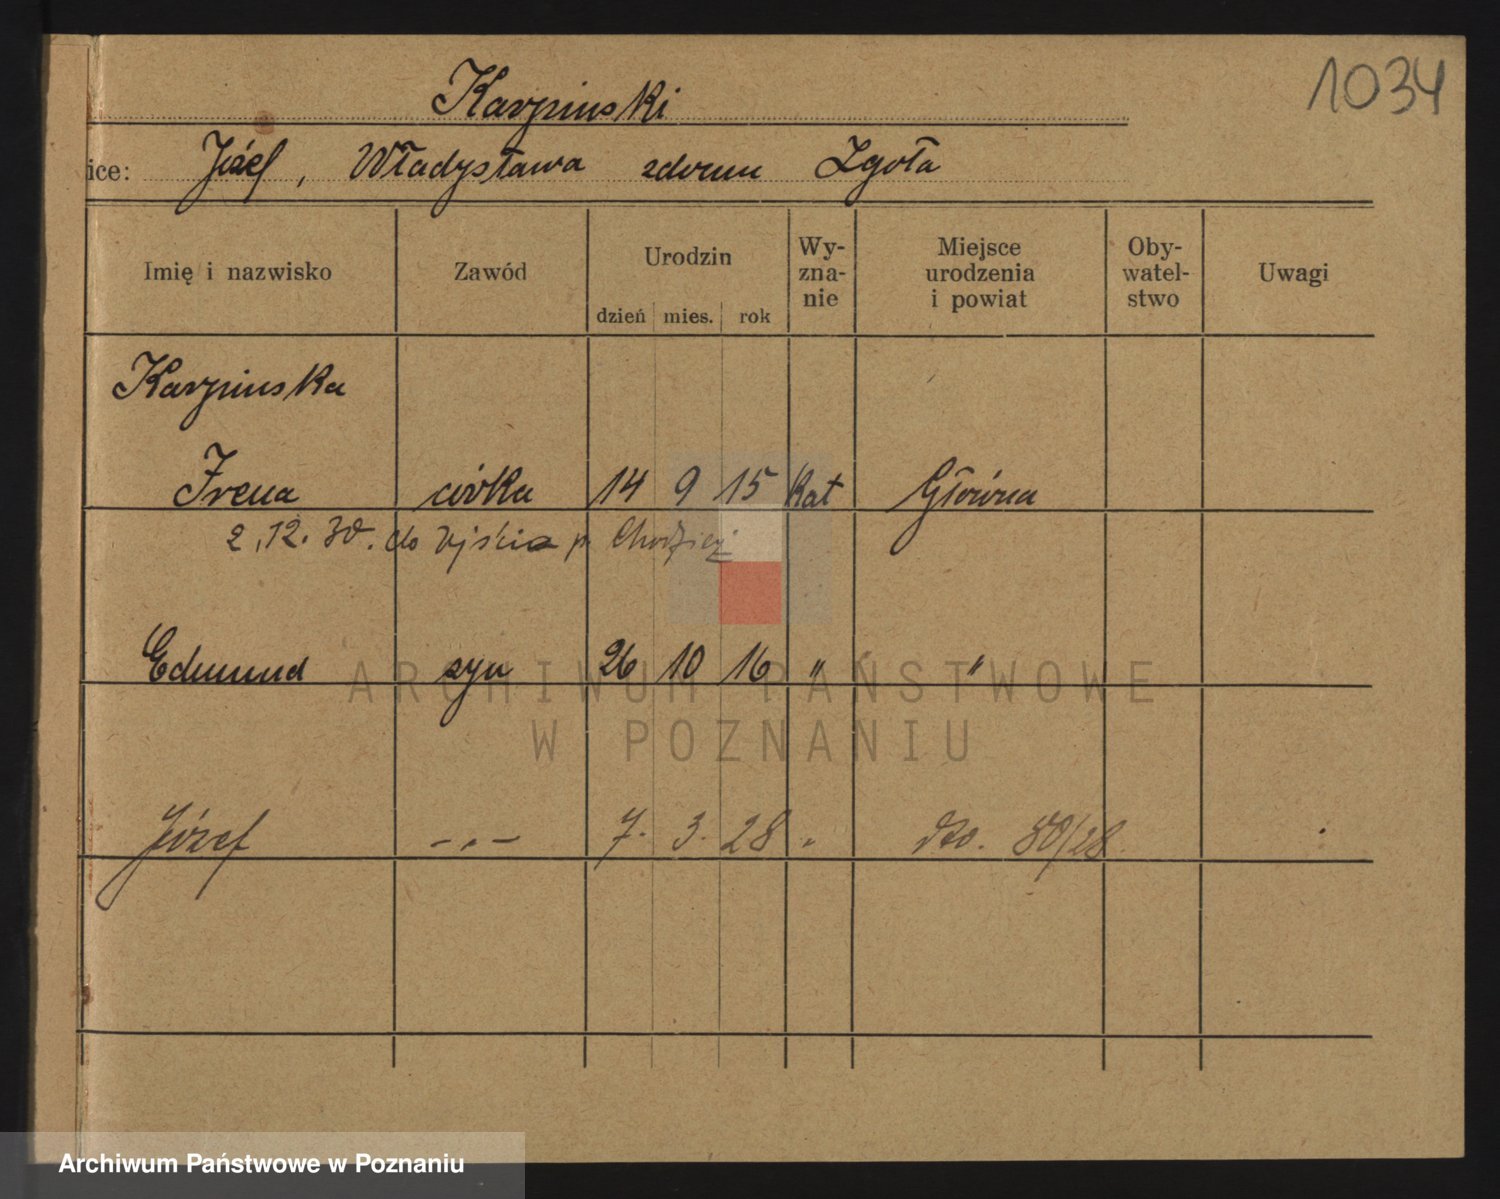 1034
Karpinski
ice: Józef, Władysława zdomu Zgoła
Imię i nazwisko Zawód Urodzin dzień mies. rok Wy-zna-nie Miejsce urodzenia i powiat Oby-watel-stwo Uwagi
Karpinska
Irena córka 14 9 15 kat Główna
2.12.30. do Ujścia p. Chodzież
Edmund syn 26 10 16 " "
ARCHIWUM PAŃSTWOWE
W POZNANIU
Józef -"- 7. 3. 28 " dto. 50/28
Archiwum Państwowe w Poznaniu